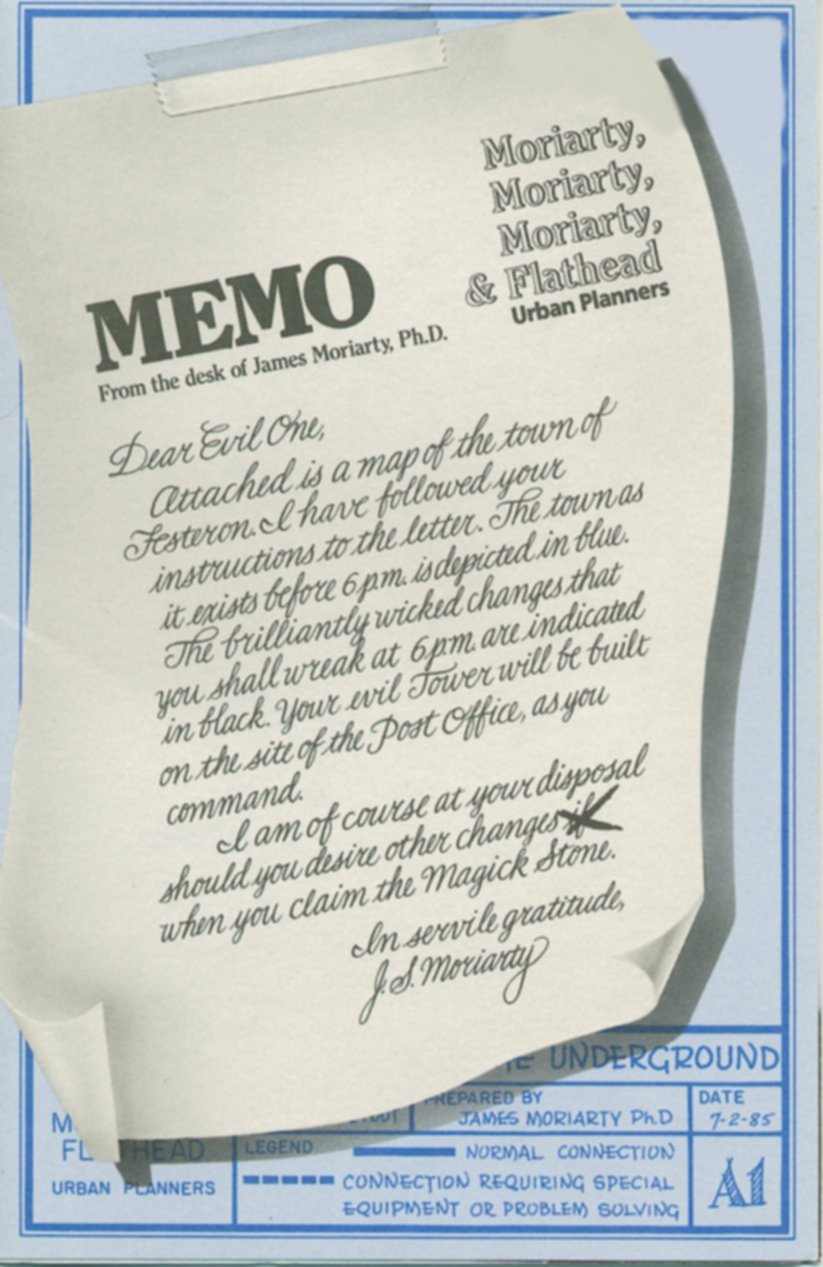 Moriarty,
Moriarty,
Moriarty,
& Flathead
Urban Planners
MEMO
From the desk of James Moriarty, Ph.D.
Dear Evil One,
Attached is a map of the town of
Festeron. I have followed your
instructions to the letter. The town as
it exists before 6 p.m. is depicted in blue.
The brilliantly wicked changes that
you shall wreak at 6 p.m. are indicated
in black. Your evil Tower will be built
on the site of the Post Office, as you
command.
I am of course at your disposal
should you desire other changes if
when you claim the Magick Stone.
In servile gratitude,
J.S. Moriarty
UNDERGROUND
PREPARED BY
JAMES MORIARTY PhD
DATE
7-2-85
FLATHEAD
URBAN PLANNERS
LEGEND
NORMAL CONNECTION
CONNECTION REQUIRING SPECIAL
EQUIPMENT OR PROBLEM SOLVING
A1